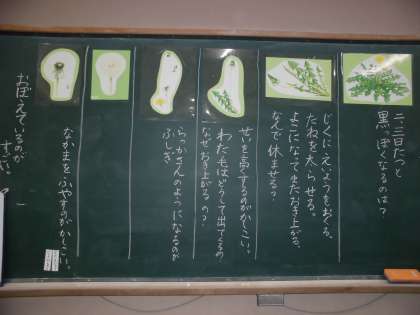 二、三日たつと
黒っぽくなるのは？
じくに、えいようをおくる。
たねを太らせる。
よこになってまたおき上がる。
なんで休ませる？
せいを高くするのがかしこい。
わた毛はどうして出てくるの
なぜおき上がるの？
らっかさんのようになるのが
ふしぎ
なかまをふやすのがかしこい。
おぼえているのが
すごい。